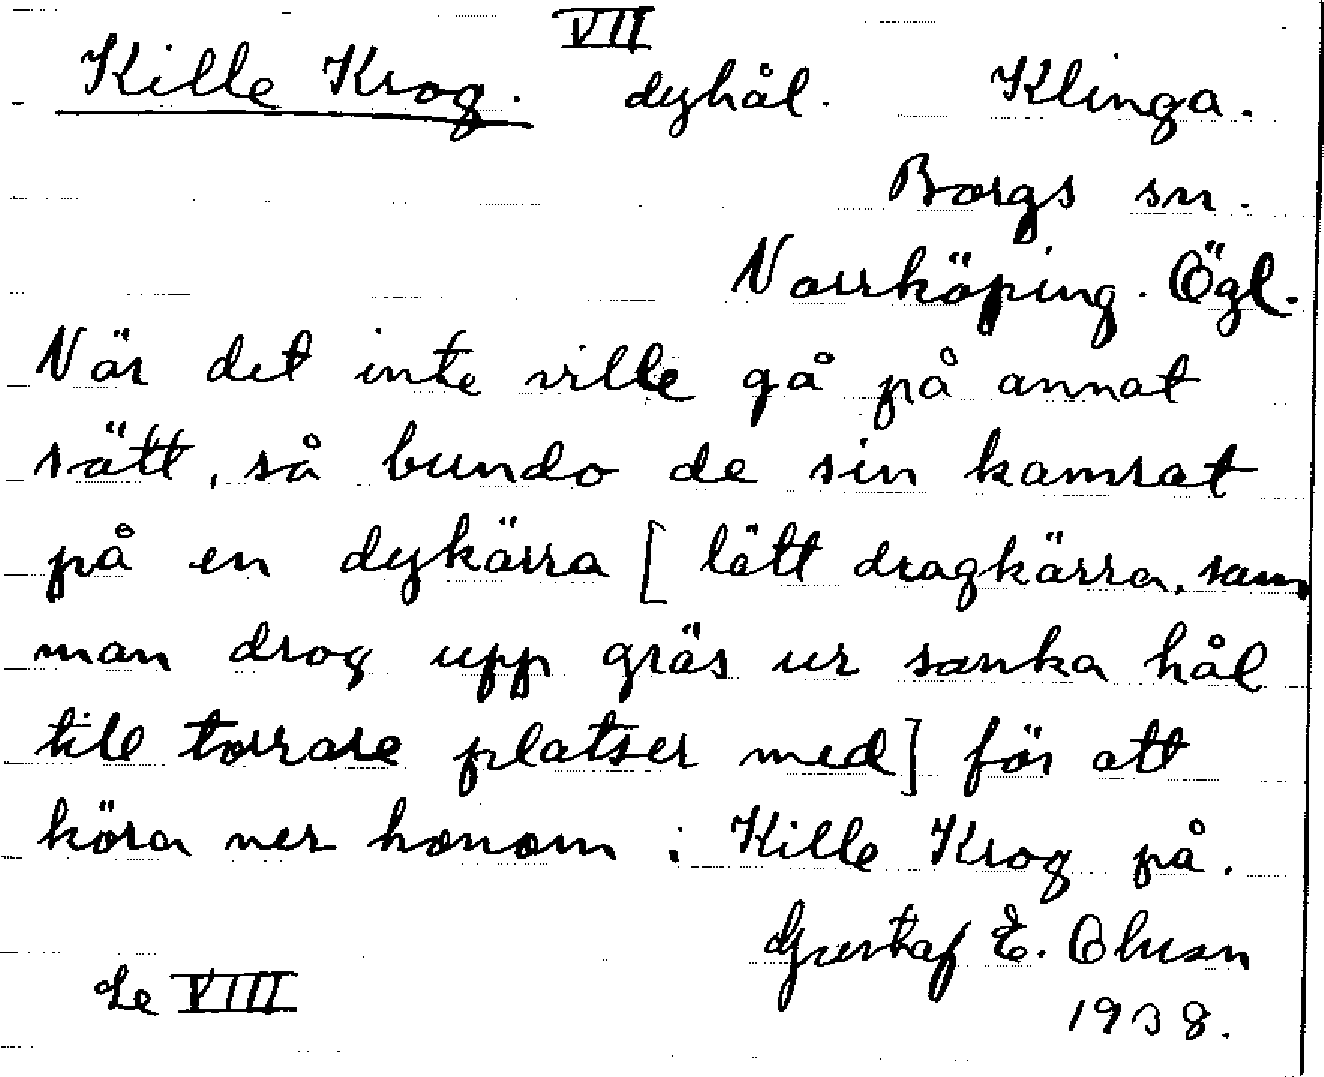 VII
Kille Krog. dyhål. Klinga.
Borgs sn.
Norrköping. Ögl.
När det inte ville gå på annat
sätt, så bundo de sin kamrat
på en dykärra [lätt dragkärra, som
man drog upp gräs ur sanka hål
till torrare platser med] för att
köra ner honom i Kille Krog på.
Gustaf E. Olusan
Se VIII
1938.